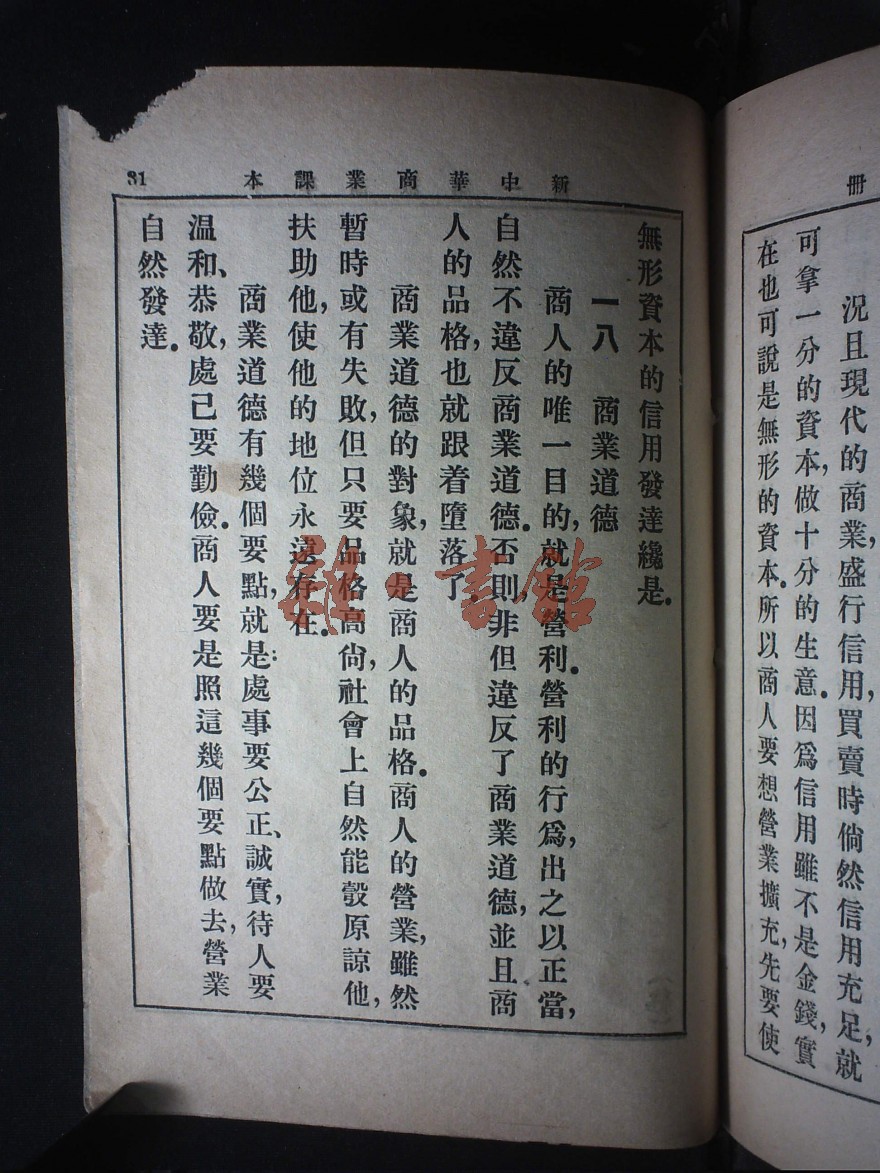 冊
況且現代的商業，盛行信用，買賣時倘然信用充足，就
可拿一分的資本，做十分的生意。因爲信用雖不是金錢，實
在也可說是無形的資本。所以商人要想營業擴充，先要使
新中華商業課本
31
無形資本的信用發達纔是。
一八　商業道德
商人的唯一目的，就是營利。營利的行爲，出之以正當，
自然不違反商業道德。否則，非但違反了商業道德，並且商
人的品格，也就跟着墮落了
商業道德的對象，就是商人的品格。商人的營業，雖然
暫時或有失敗，但只要品格高尙，社會上自然能彀原諒他，
扶助他，使他的地位永遠存在。
商業道德有幾個要點，就是：處事要公正、誠實，待人要
温和、恭敬，處己要勤儉。商人要是照這幾個要點做去，營業
自然發達。
雜·書館